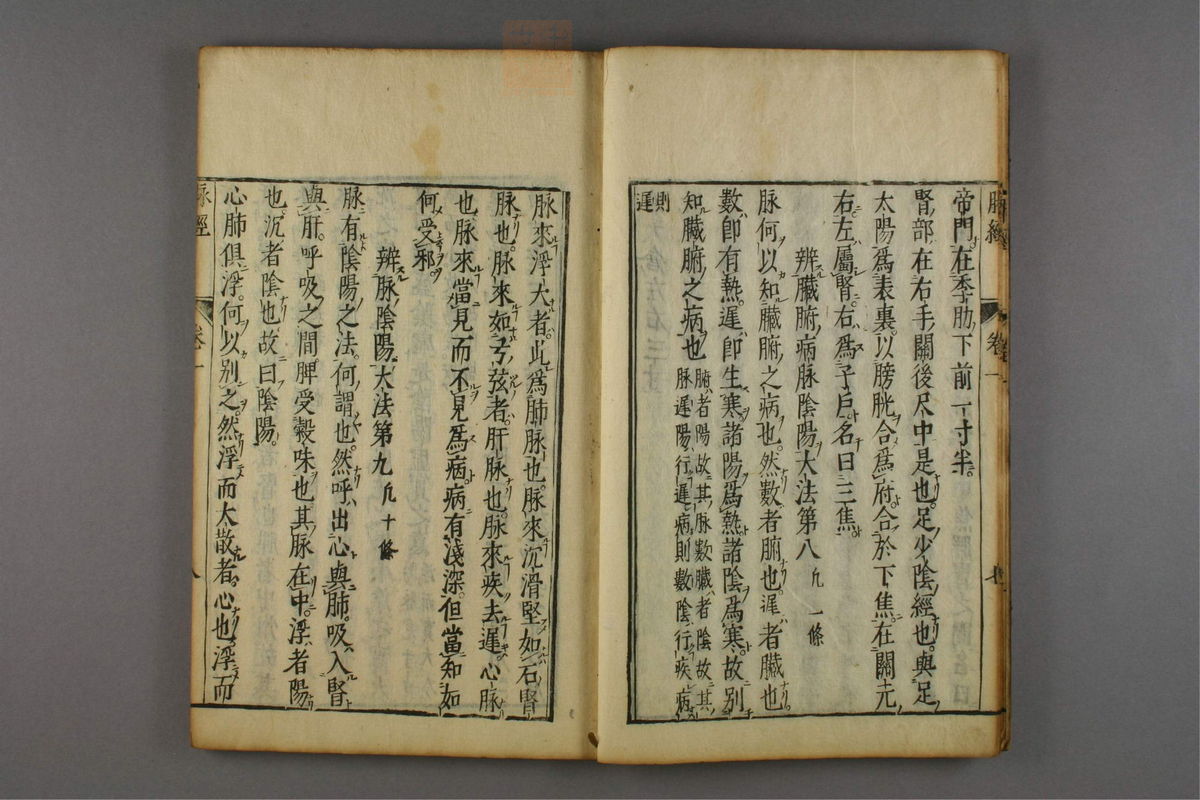 脉經 卷一 七
帝門在季肋下前一寸半。
腎部在右手關後尺中是也。足少陰經也。與足
太陽爲表裏。以膀胱合爲府。合於下焦在關元
右左屬腎。右爲子戶。名曰三焦
辨臟腑病脉陰陽大法第八 凢一條
脉何以知臟腑之病也。然數者腑也。遲者臟也。
數即有熱。遲即生寒。諸陽爲熱。諸陰爲寒。故別
知臟腑之病也 腑者陽故其脉數臟者陰故其
脉遲陽行遲病則數陰行疾病
則遲
脉來浮大者。此爲肺脉也。脉來沉滑堅如石腎
脉也。脉來如弓弦者。肝脉也。脉來疾去遲。心脉
也。脉來當見而不見爲病。病有淺深。但當知如
何受邪。
辨脉陰陽大法第九 凢十條
脉有陰陽之法。何謂也。然呼出心與肺。吸入腎
與肝。呼吸之間。脾受穀味也。其脉在中。浮者陽
也。沉者陰也。故曰陰陽。
心肺俱浮。何以別之。然浮而大散者。心也。浮而
脉經 卷一 八